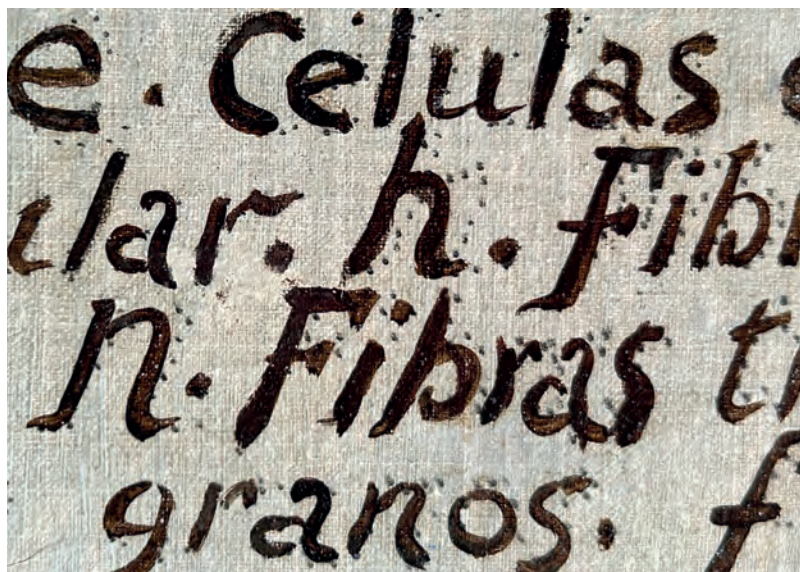 e. Celulas
ular. h. Fib
n. Fibras t
granos. f